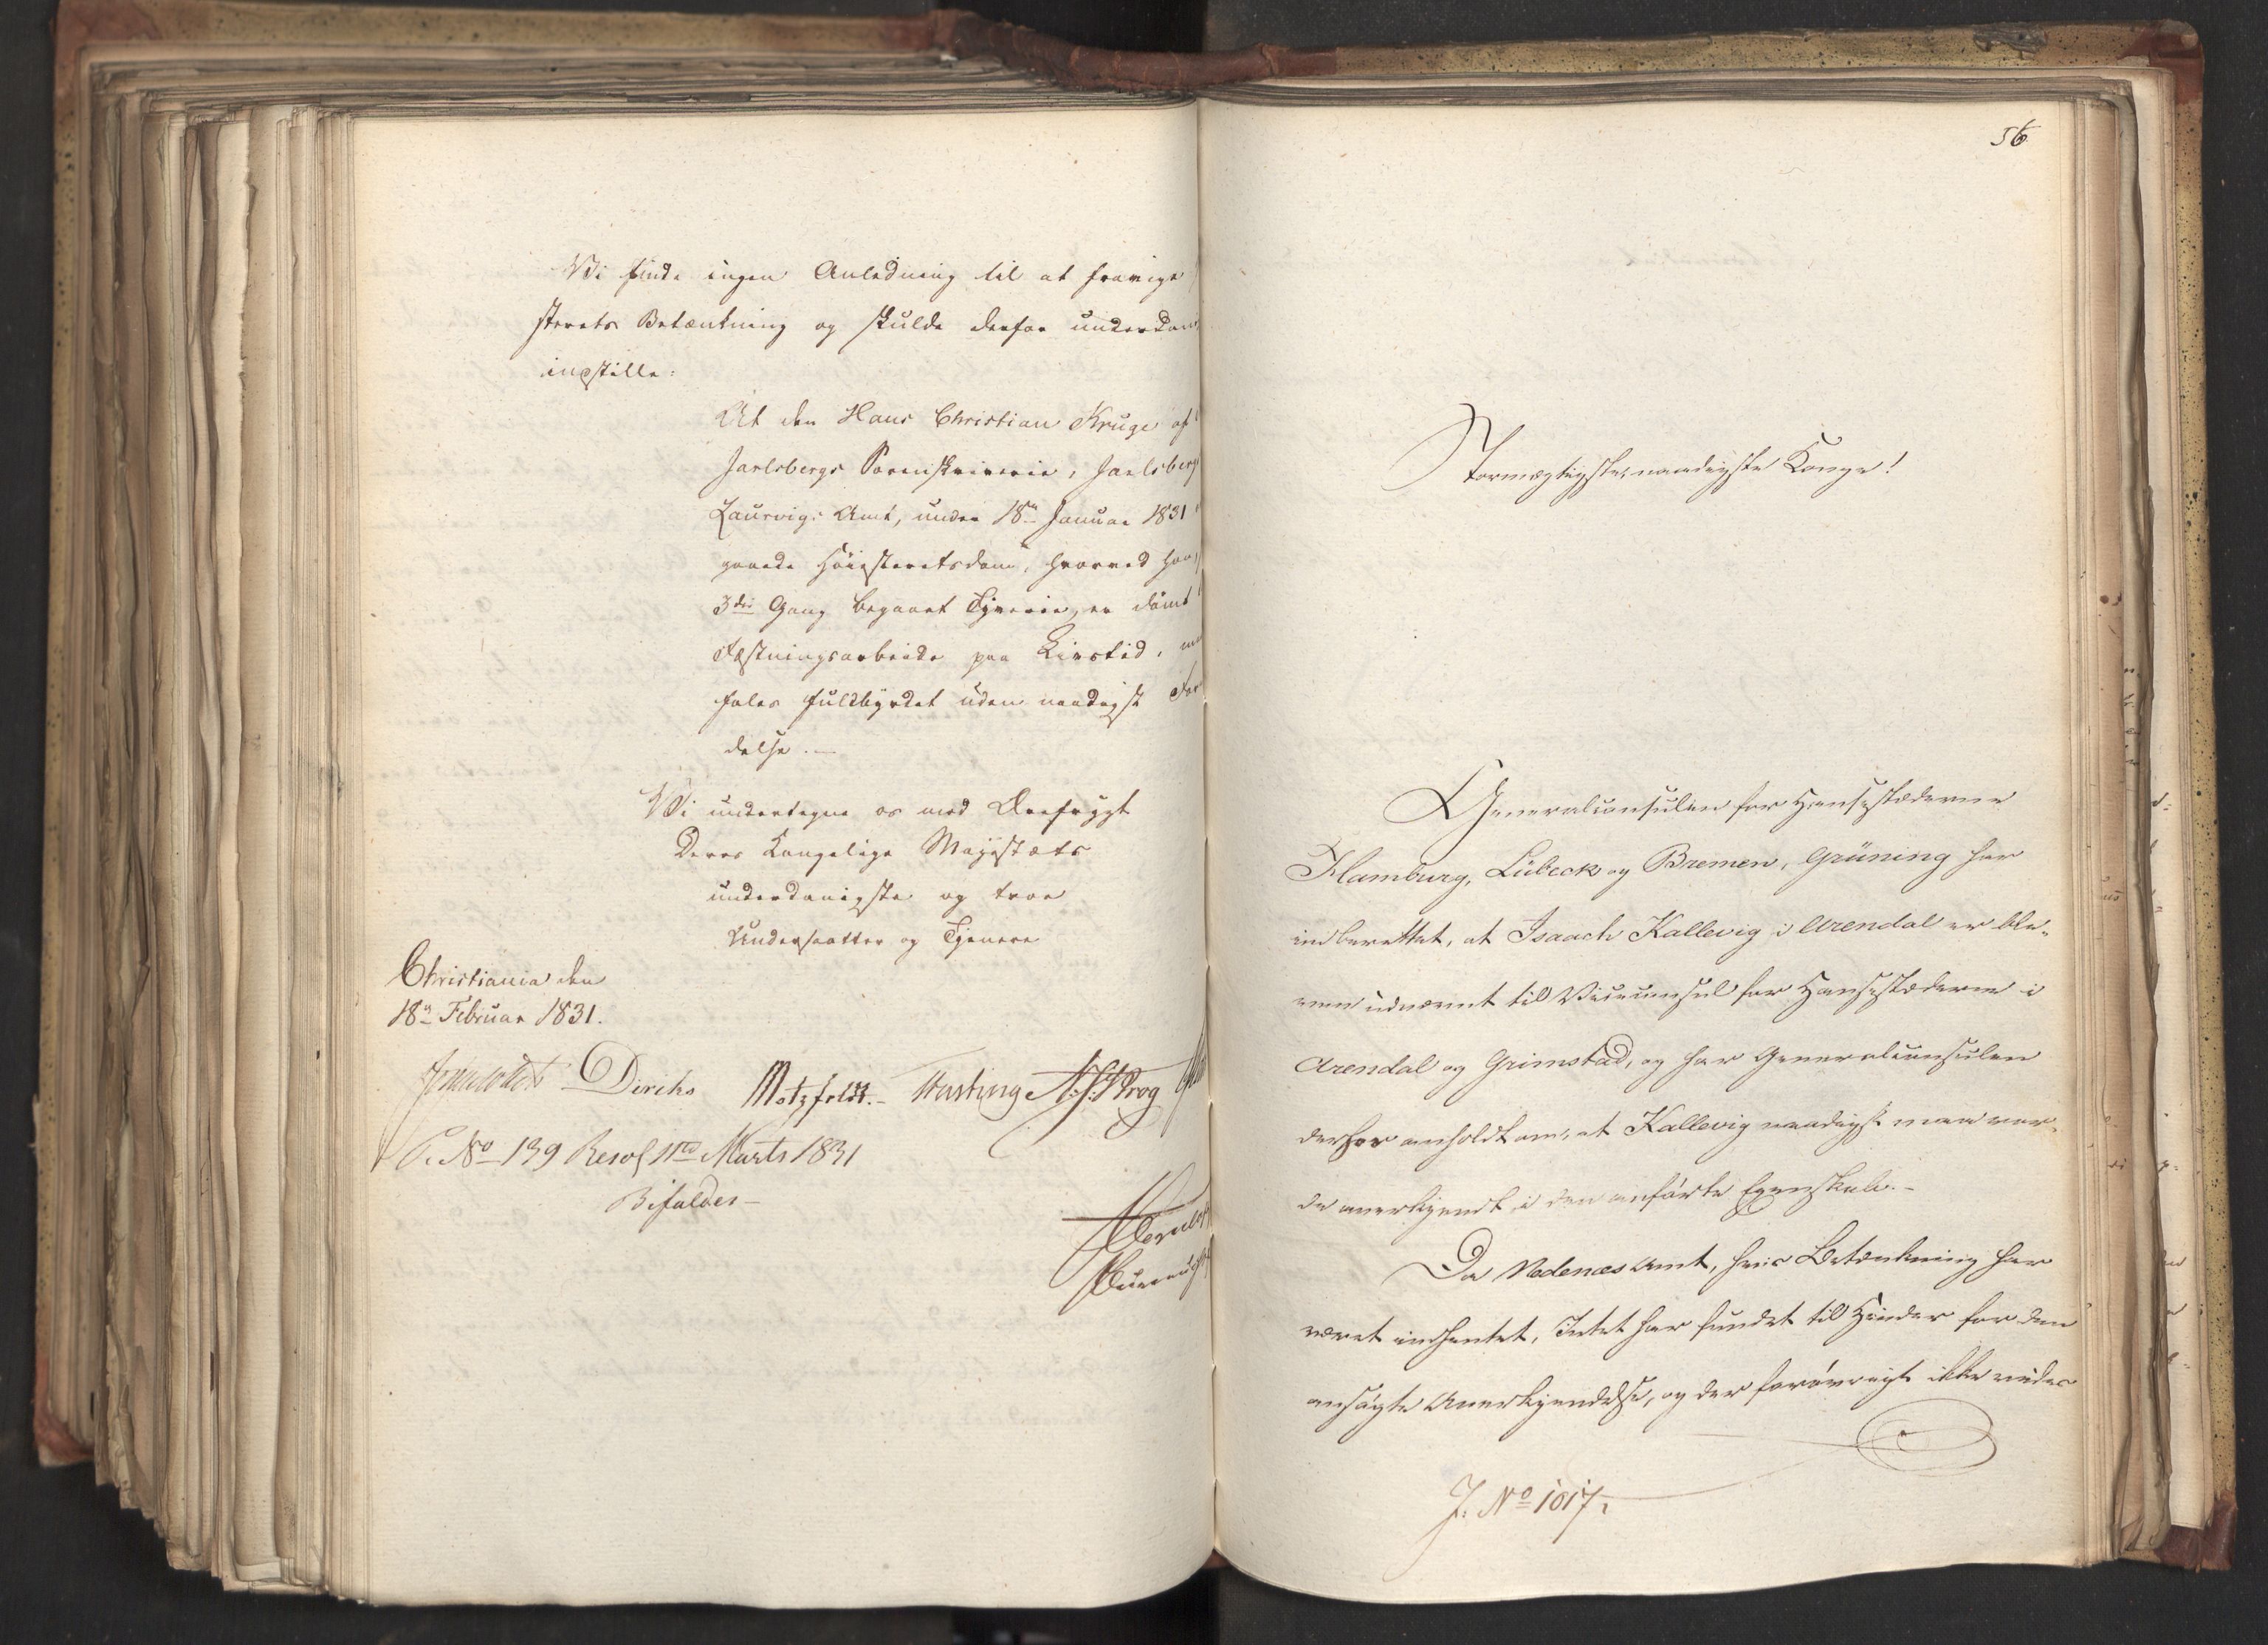 Vi finde ingen Anledning til at fravige
sterets Betænkning og skulde derfor underdan
indstille:
At den Hans Christian Kruge af
Jarlsbergs Sorenskriverie, Jarlsberg
Laurvigs Amt, under 18de Januar 1831
gaaede Høiesteretsdom, hvorved han,
3die Gang begaaet Tyverie, er dømt
Fæstningsarbeide paa Livstid,
fales fuldbyrdet uden naadigst For
delse.—
Vi undertegne os med Ærefrygt
Deres Kongelige Majestæts
underdanigste og troe
Undersaatter og Tjenere
Christiania den
18de Februar 1831.
Diriks Motzfeldt.- Fasting
P. No 139 Resol 11te Marts 1831
Bifaldes-
56
Stormægtigste, naadigste Konge!
Generalconsulen for Hansestæderne
Hamburg, Lübeck og Bremen, Grüning har
indberettet, at Isaach Kallevig i Arendal er ble-
ven udnævnt til Viceconsul for Hansestæderne i
Arendal og Grimstad, og har Generalconsulen
derhos anholdt om, at Kallevig naadigst maa vor-
de anerkjendt i den anførte Egenskab.-
Da Nedenæs Amt, hvis Betænkning har
været indhentet, Intet har fundet til Hinder for den
ansøgte Anerkjendelse, og der forøvrigt ikke vides
J. No 1017.